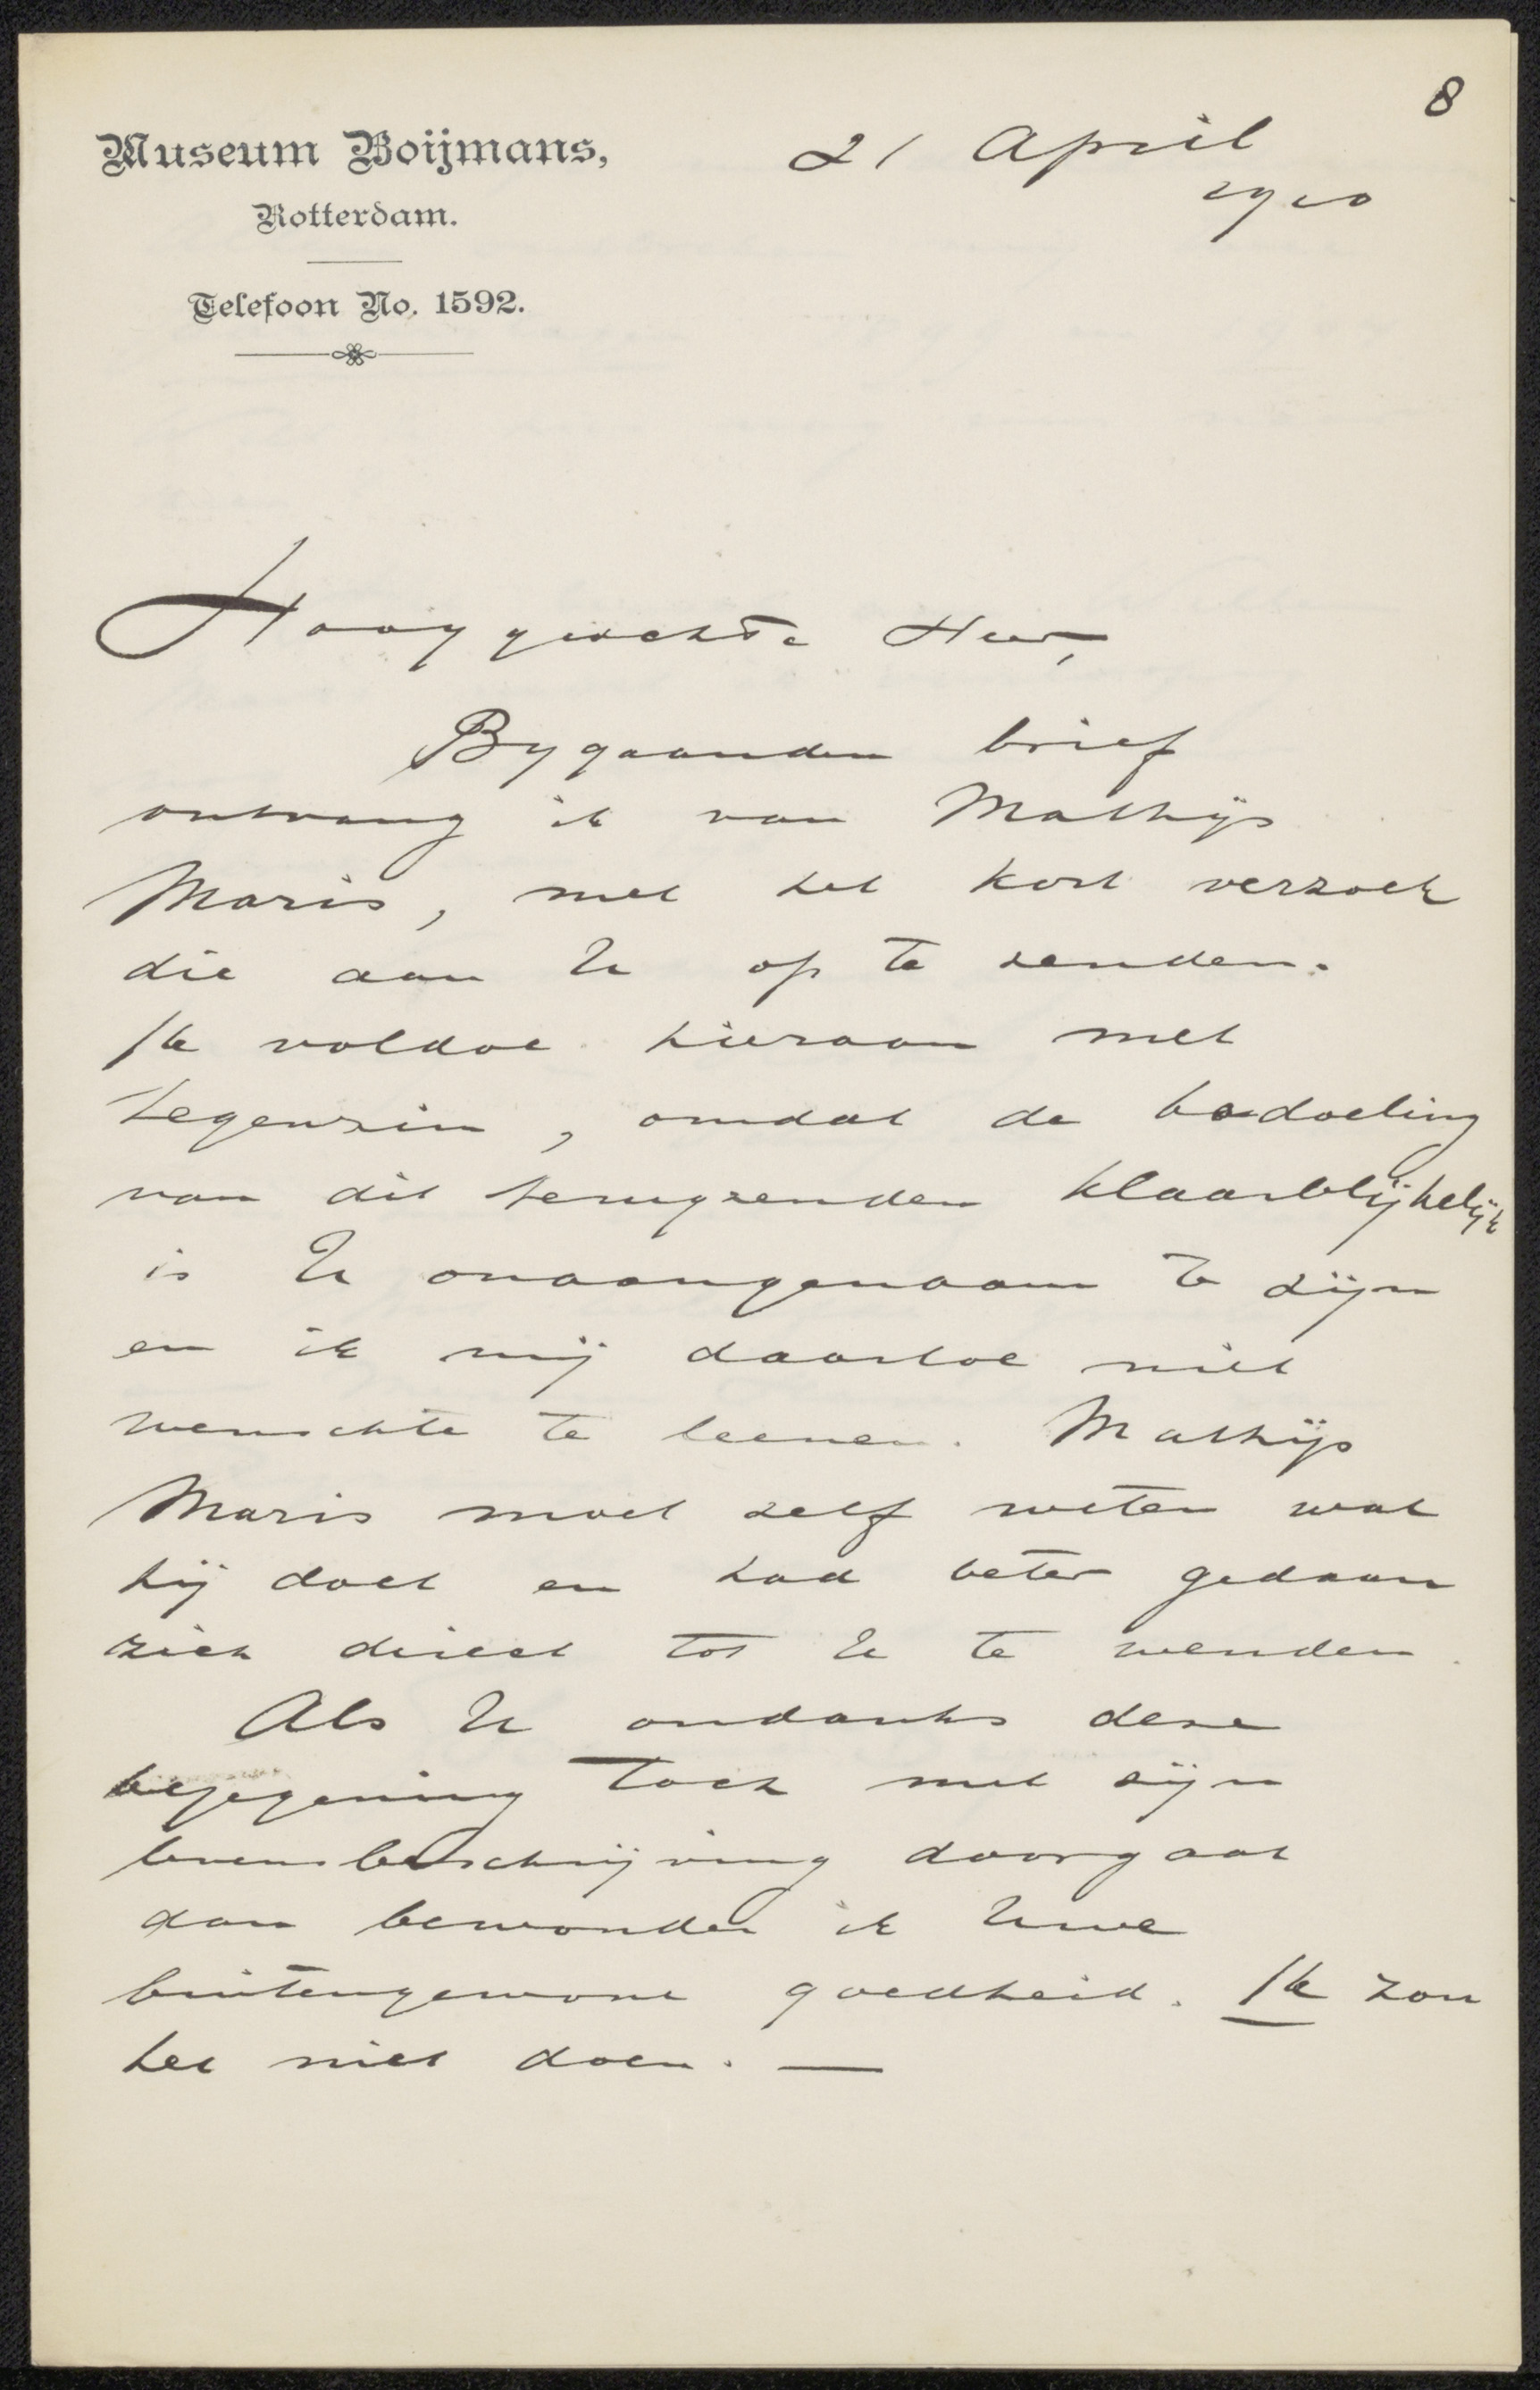 8
Museum Boijmans,
Rotterdam.
Telefoon No. 1592.
21 April
1910
Hooggeachte Heer,
Bygaanden brief
ontvang ik van Mathijs
Maris, met het kort verzoek
die aan U op te zenden.
Ik voldoe hieraan met
tegenzin, omdat de bedoeling
van dit terugzenden klaarblijkelijk
is U onaangenaam te zijn
en ik mij daartoe niet
wenschte te leenen. Mathijs
Maris moet zelf weten wat
hij doet en had beter gedaan
zich direct tot U te wenden.
Als U ondanks deze
bejegening toch met zijn
levensbeschrijving doorgaat
dan bewonder ik Uwe
buitengewone goedheid. Ik zou
het niet doen. —